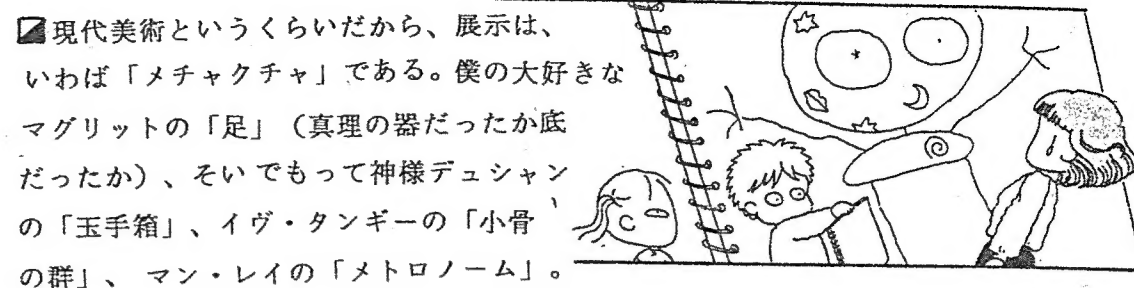 ◪現代美術というくらいだから、展示は、
いわば「メチャクチャ」である。僕の大好きな
マグリットの「足」（真理の器だったか底
だったか）、そいでもって神様デュシャン
の「玉手箱」、イヴ・タンギーの「小骨
の群」、マン・レイの「メトロノーム」。